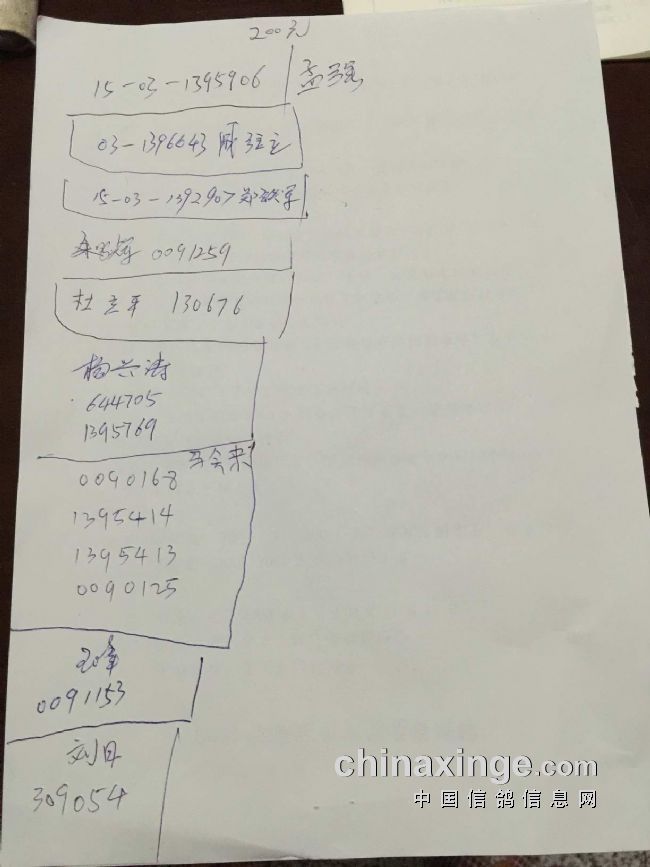 200元
15-03-1395906 孟强
03-1396643
15-03-1392907 郑铁军
0091259
杜立平 130676
杨兴涛
644705
1395769
马会来
0090168
1395414
1395413
0090125
王峰
0091153
刘日
309054
chinaxinge.com
中国信鸽信息网